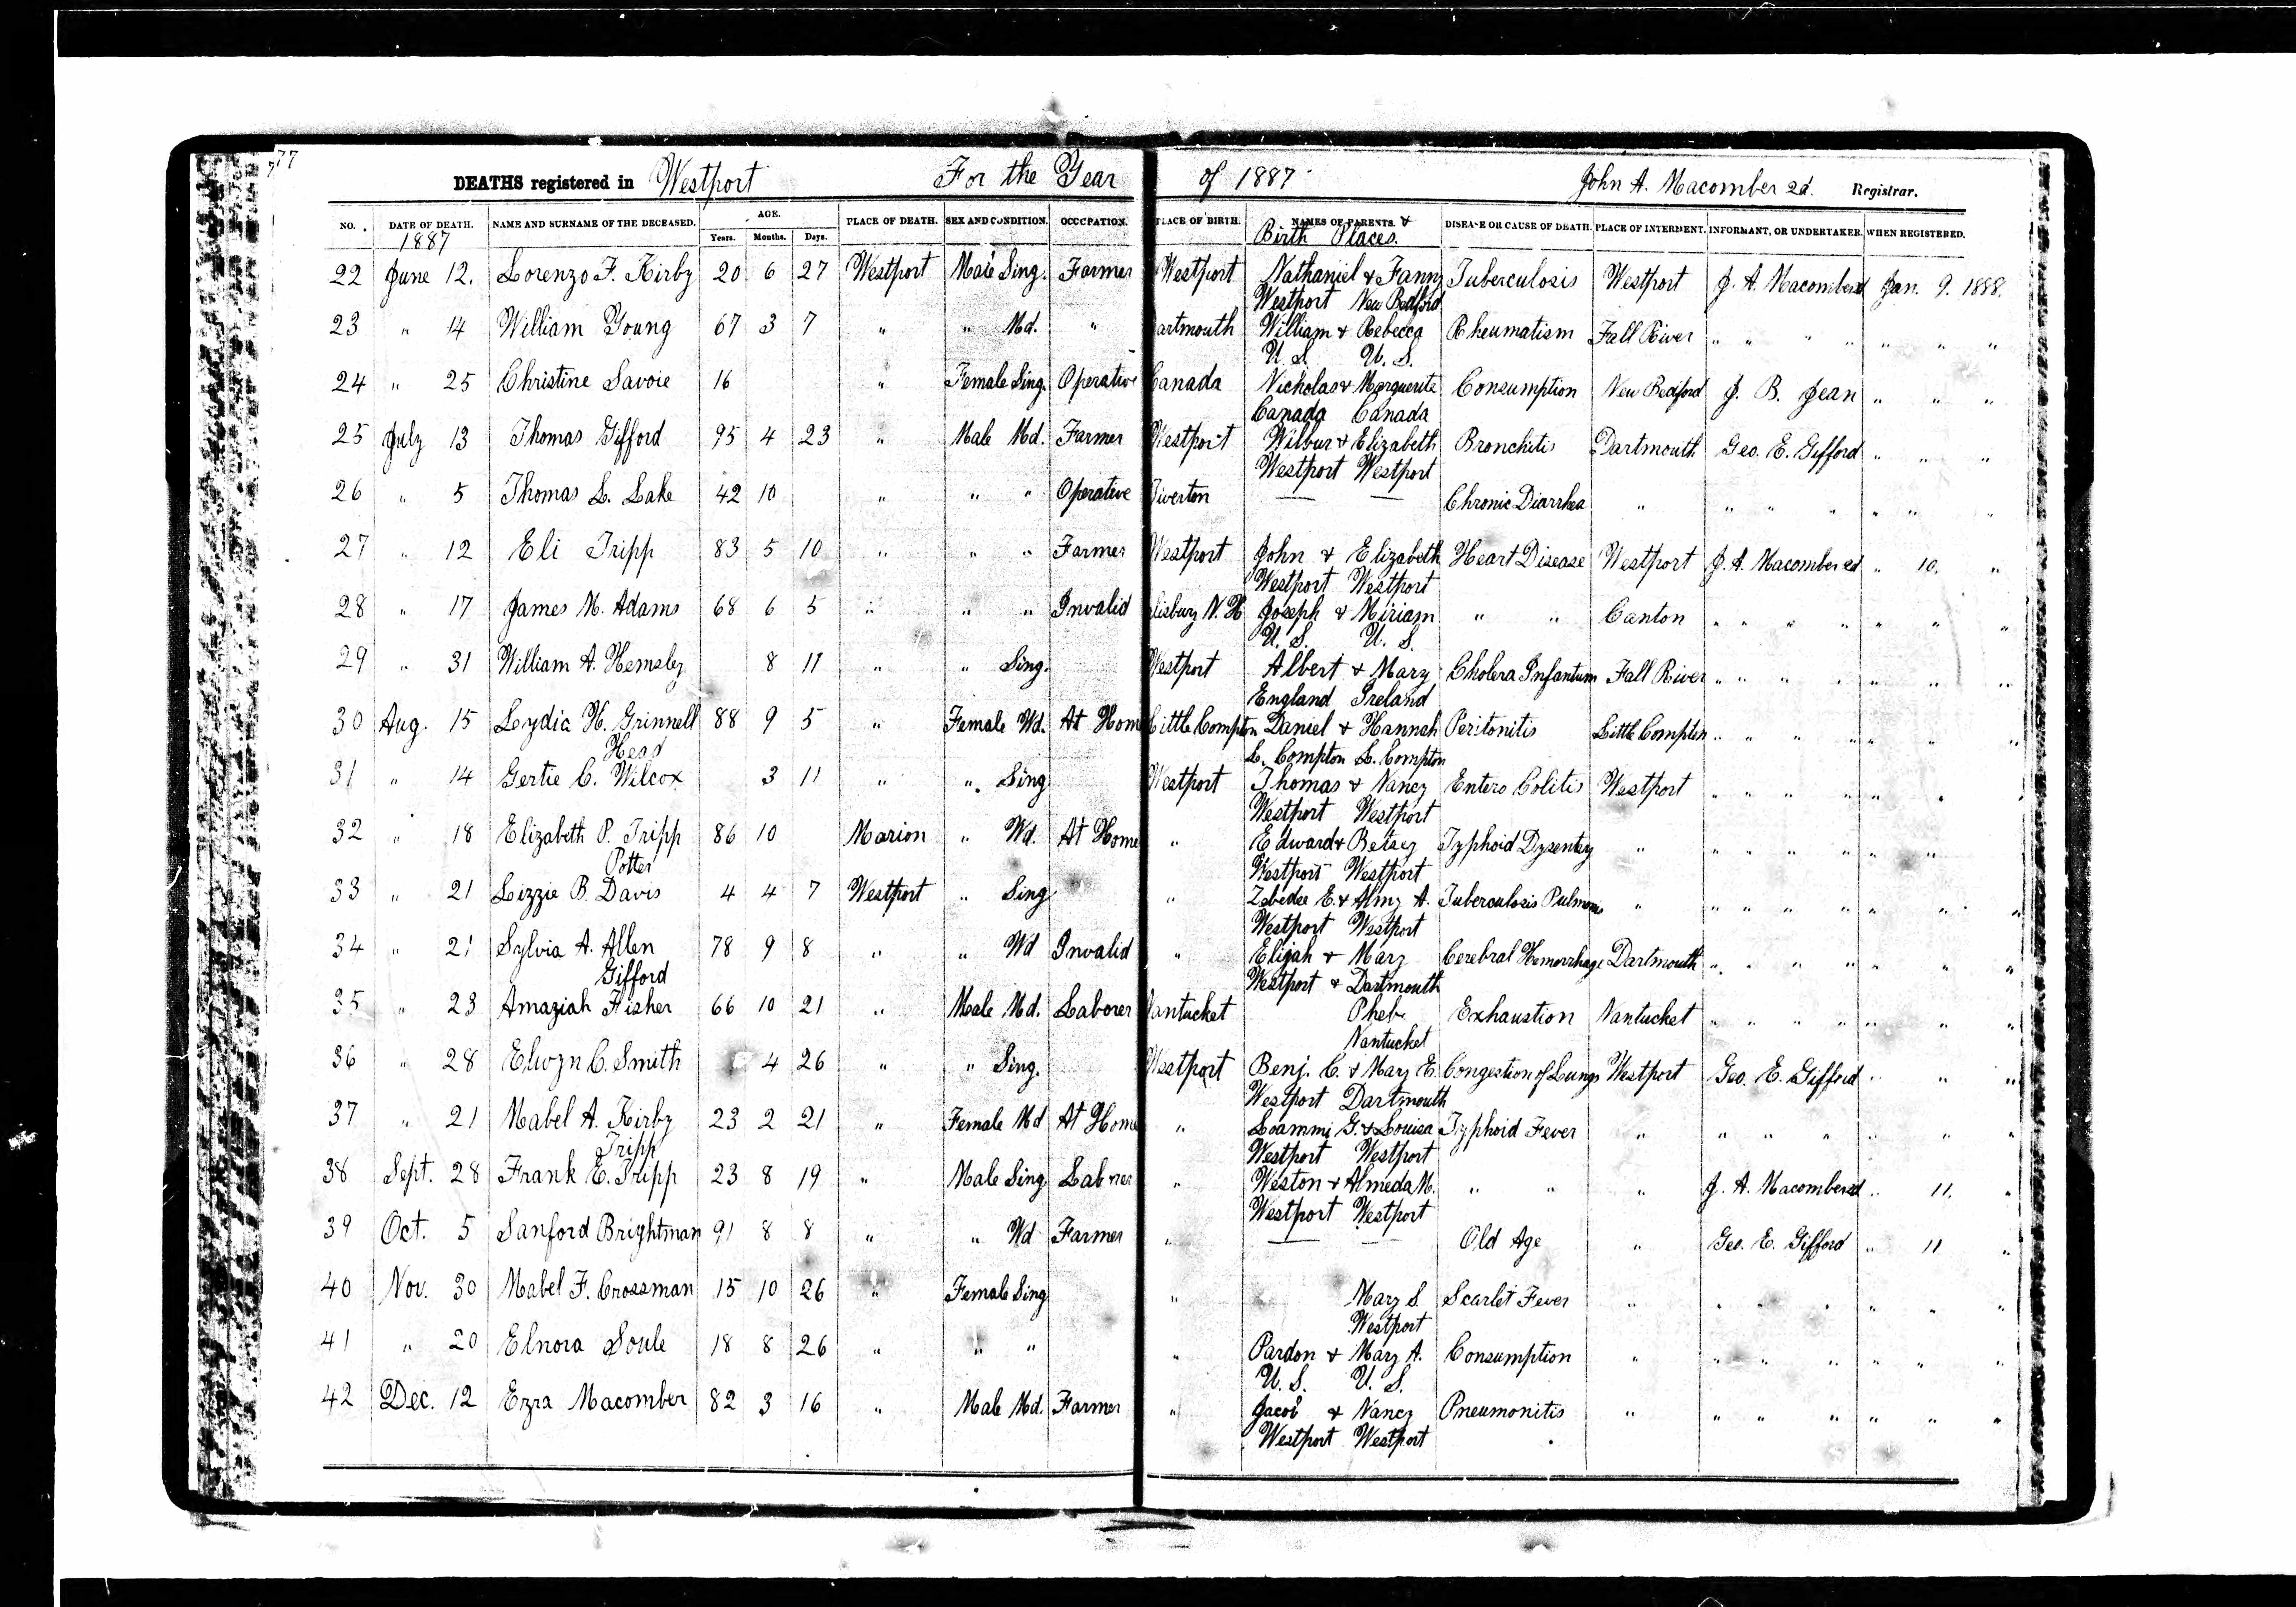 77
DEATHS registered in Westport For the Year of 1887 John A. Macomber 2d. Registrar.
NO. DATE OF DEATH. NAME AND SURNAME OF THE DECEASED. AGE. PLACE OF DEATH. SEX AND CONDITION. OCCUPATION. PLACE OF BIRTH. NAMES OF PARENTS. & DISEASE OR CAUSE OF DEATH. PLACE OF INTERMENT. INFORMANT, OR UNDERTAKER. WHEN REGISTERED.
1887 Years. Months. Days. Birth Places.
22 June 12. Lorenzo F. Kirby 20 6 27 Westport Male Sing. Farmer Westport Nathaniel & Fanny Tuberculosis Westport J. A. Macomber 2d Jan. 9. 1888.
Westport New Bedford
23 " 14 William Young 67 3 7 " " Md. " Dartmouth William & Rebecca Rheumatism Fall River " " " " " " "
U. S. U. S.
24 " 25 Christine Savoie 16 " Female Sing. Operative Canada Nicholas & Marguerite Consumption New Bedford J. B. Jean " " "
Canada Canada
25 July 13 Thomas Gifford 95 4 23 " Male Md. Farmer Westport Wilbur & Elizabeth Bronchitis Dartmouth Geo. E. Gifford " " "
Westport Westport
26 " 5 Thomas L. Lake 42 10 " " " Operative Tiverton — — Chronic Diarrhea " " " " " " "
27 " 12 Eli Tripp 83 5 10 " " " Farmer Westport John & Elizabeth Heart Disease Westport J. A. Macomber 2d " 10. "
Westport Westport
28 " 17 James M. Adams 68 6 5 " " " Invalid lisbury N. H Joseph & Miriam " " Canton " " " " " " "
U. S. U. S.
29 " 31 William A. Hemsley 8 11 " " Sing. Westport Albert & Mary Cholera Infantum Fall River " " " " " " "
England Ireland
30 Aug. 15 Lydia H. Grinnell 88 9 5 " Female Wd. At Home Little Compton Daniel & Hannah Peritonitis Little Compton " " " " " " "
Head L. Compton L. Compton
31 " 14 Gertie C. Wilcox 3 11 " " Sing Westport Thomas & Nancy Entero Colitis Westport " " " " " " "
Westport Westport
32 " 18 Elizabeth P. Tripp 86 10 Marion " Wd. At Home " Edward & Betsey Typhoid Dysentery " " " " " " "
Potter Westport Westport
33 " 21 Lizzie B. Davis 4 4 7 Westport " Sing " Zebedee E. & Almy A. Tuberculosis Pulmonis " " " " " " " "
Westport Westport
34 " 21 Sylvia A. Allen 78 9 8 " " Wd Invalid " Elijah & Mary Cerebral Hemorrhage Dartmouth " " " " " " "
Gifford Westport & Dartmouth
35 " 23 Amaziah Fisher 66 10 21 " Male Md. Laborer Nantucket Phebe Exhaustion Nantucket " " " " " " "
Nantucket
36 " 28 Elwyn C. Smith 4 26 " " Sing. Westport Benj. C. & Mary E. Congestion of Lungs Westport Geo. E. Gifford " " "
Westport Dartmouth
37 " 21 Mabel A. Kirby 23 2 21 " Female Md At Home " Loammi G. & Louisa Typhoid Fever " " " " " " "
Tripp Westport Westport
38 Sept. 28 Frank E. Tripp 23 8 19 " Male Sing Laborer " Weston & Almeda M. " " " J. A. Macomber 2d " 11. "
Westport Westport
39 Oct. 5 Sanford Brightman 91 8 8 " " Wd Farmer " — — Old Age " Geo. E. Gifford " 11 "
40 Nov. 30 Mabel F. Crossman 15 10 26 " Female Sing " Mary S. Scarlet Fever " " " " " " "
Westport
41 " 20 Elnora Soule 18 8 26 " " " " Pardon & Mary A. Consumption " " " " " " "
U. S. U. S.
42 Dec. 12 Ezra Macomber 82 3 16 " Male Md. Farmer " Jacob & Nancy Pneumonitis " " " " " " "
Westport Westport